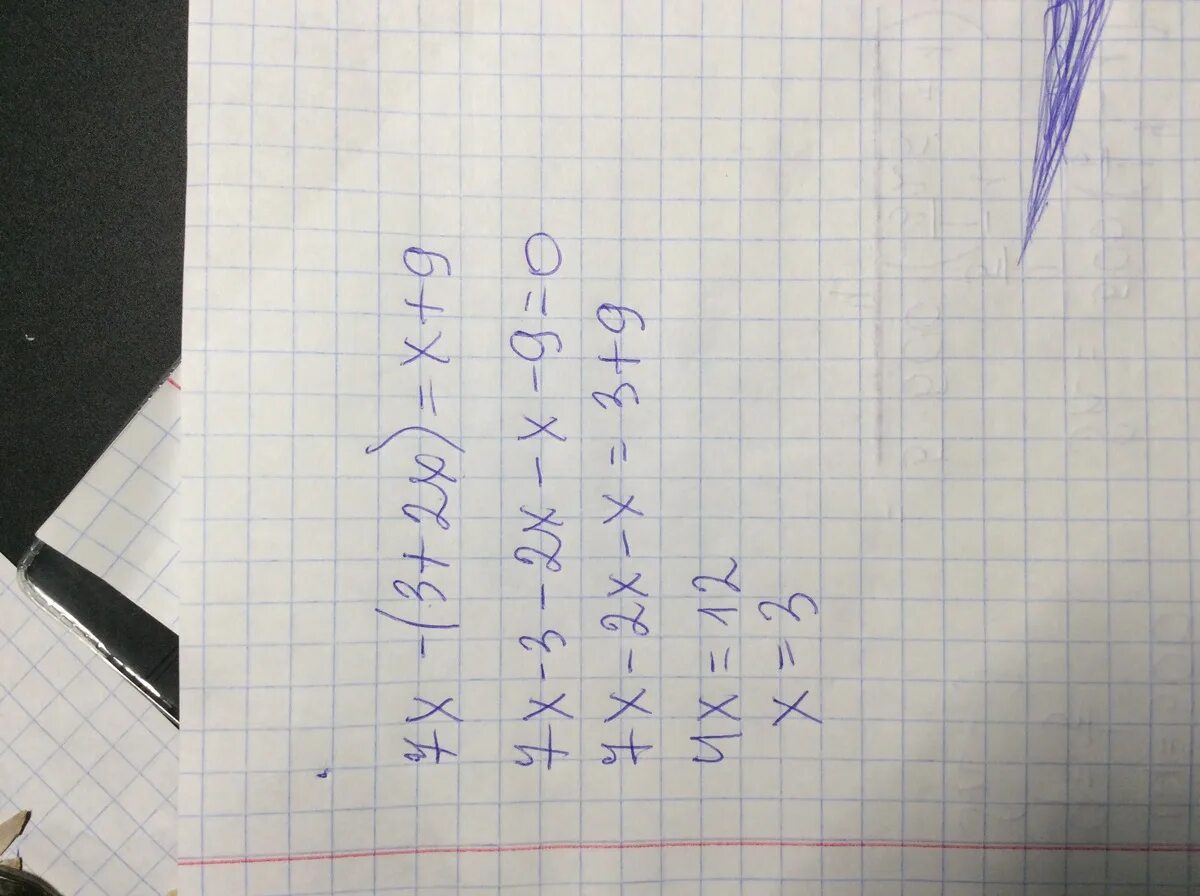 7x - (3 + 2x) = x + 9
7x - 3 - 2x - x - 9 = 0
7x - 2x - x = 3 + 9
4x = 12
x = 3